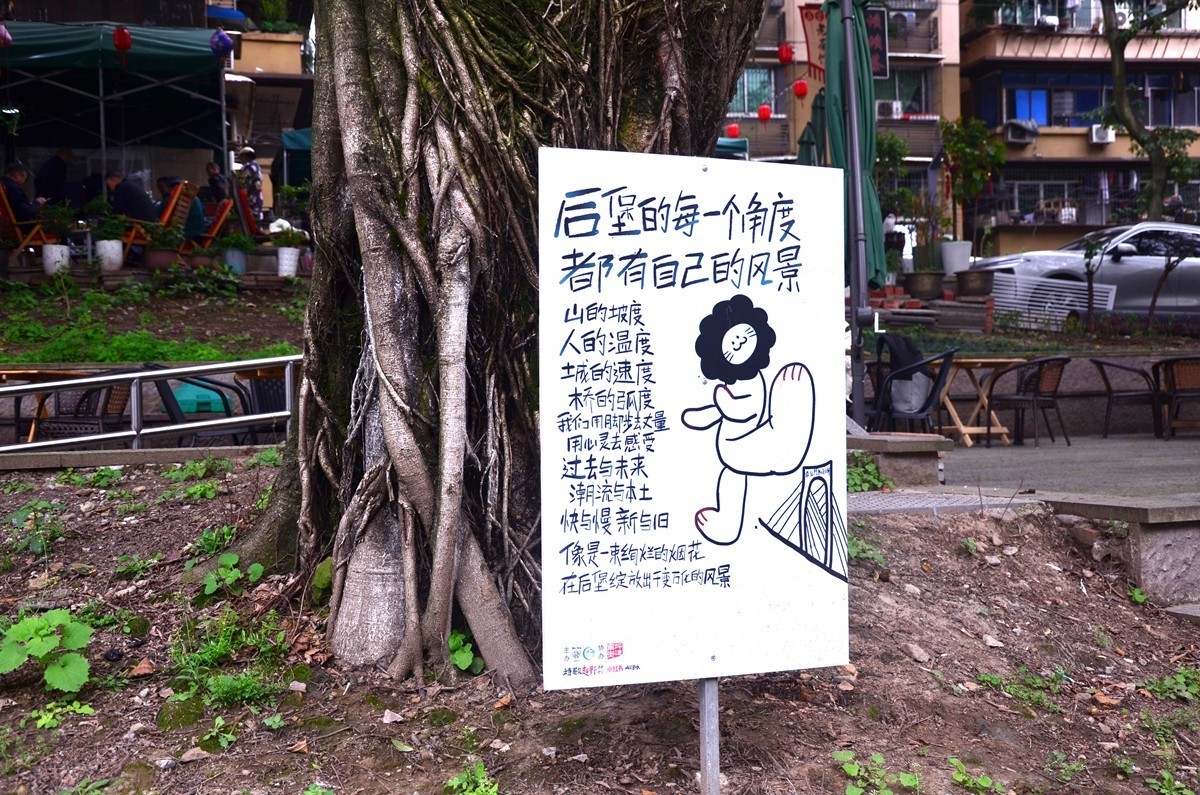 后堡的每一个角度
都有自己的风景
山的坡度
人的温度
城的速度
桥的弧度
我们用脚步去丈量
用心灵去感受
过去与未来
潮流与本土
快与慢 新与旧
像是一束绚烂的烟花
在后堡绽放出千变万化的风景
主办
协办